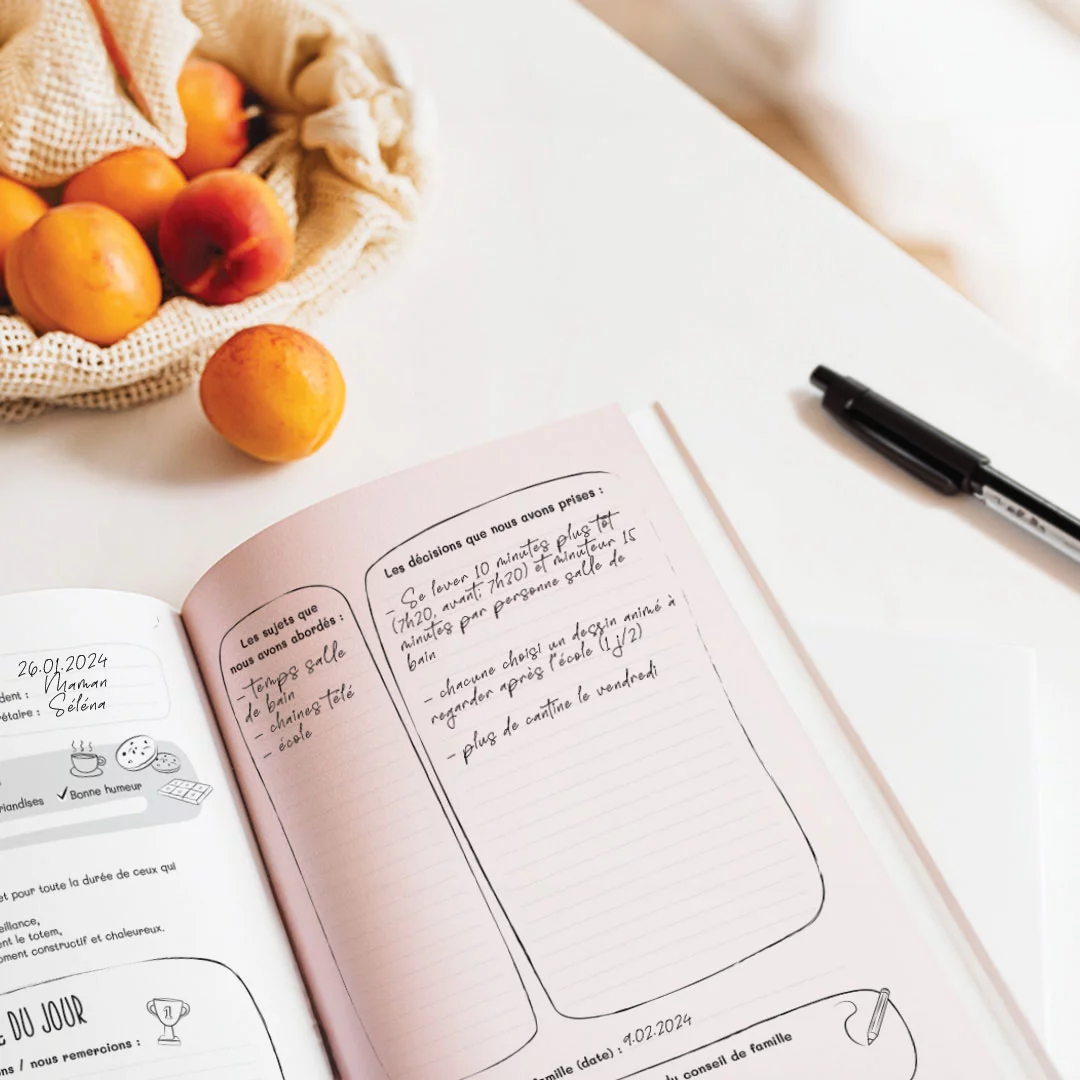 26.01.2024
dent : Maman
étaire : Séléna
riandises ✓Bonne humeur
et pour toute la durée de ceux qui
eillance,
ent le totem,
oment constructif et chaleureux.
E DU JOUR
ns / nous remercions :
1
Les sujets que
nous avons abordés :
- temps salle
de bain
- chaines télé
- école
Les décisions que nous avons prises :
- Se lever 10 minutes plus tôt
(7h20, avant: 7h20) et minuteur 15
minutes par personne salle de
bain
- chacune choisi un dessin animé à
regarder après l'école (1 j/2)
- plus de cantine le vendredi
amille (date) : 9.02.2024
du conseil de famille